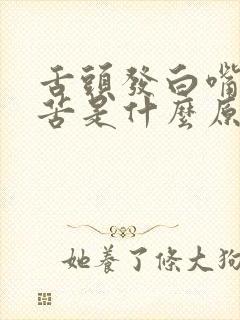 舌頭發白嘴
苦是什麼原
她養了條大狗